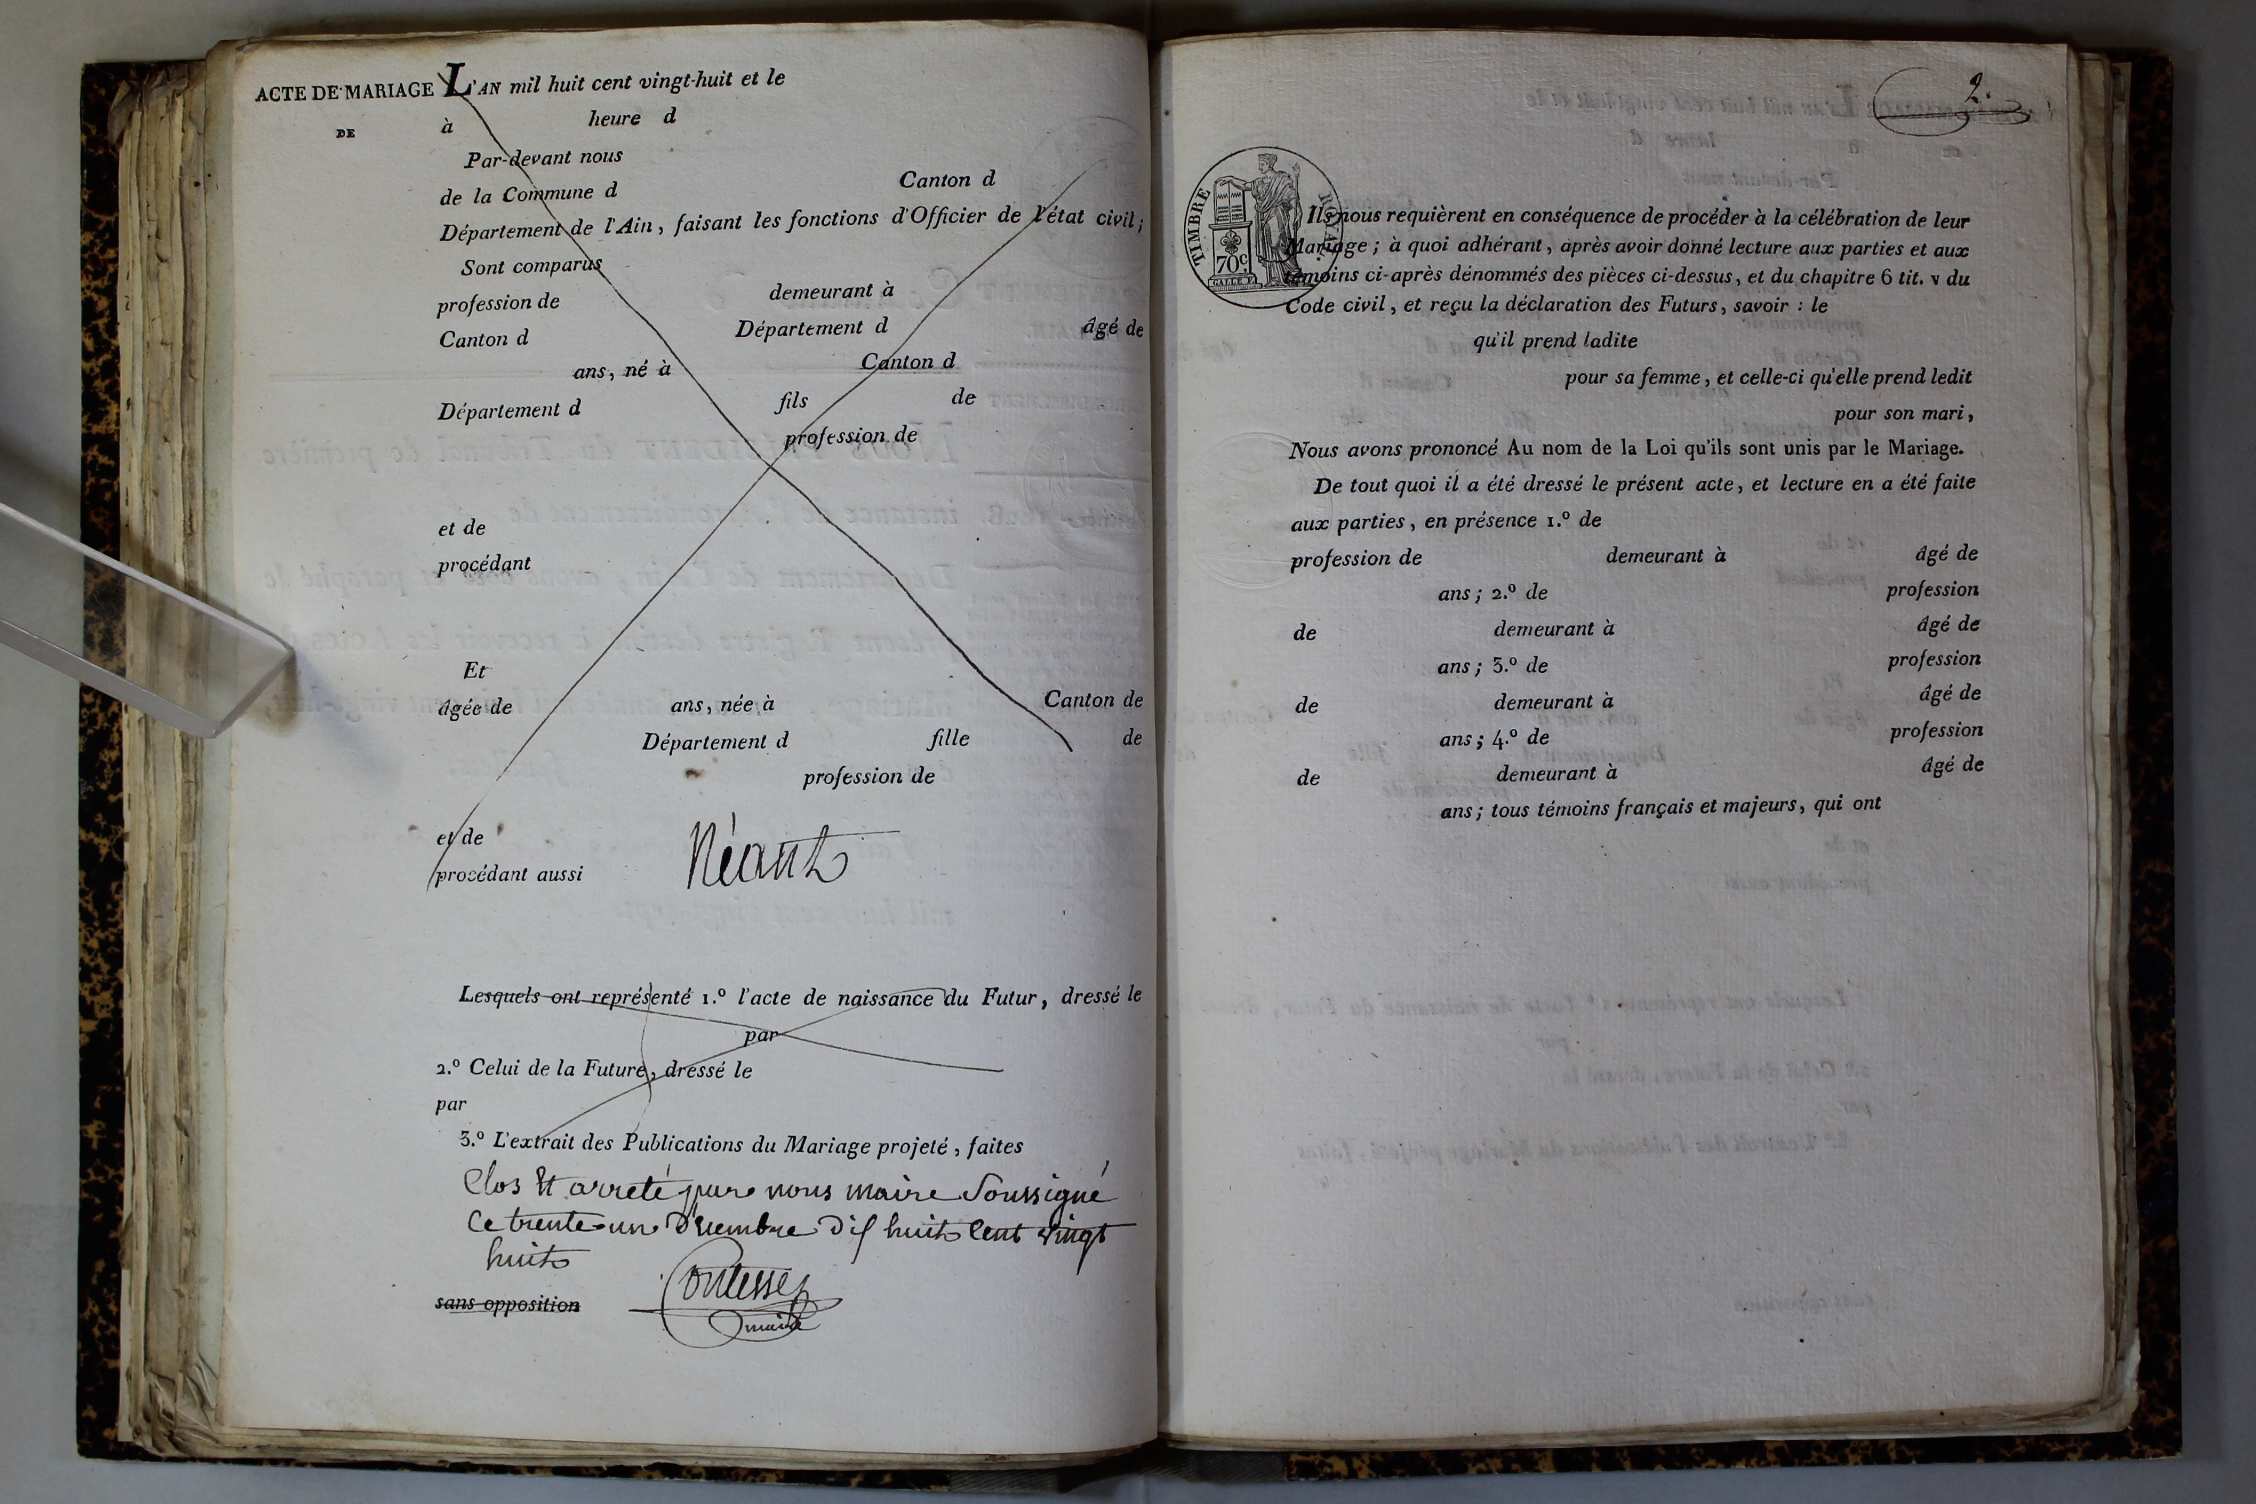 ACTE DE MARIAGE L'AN mil huit cent vingt-huit et le
DE à heure d
Par-devant nous
de la Commune d Canton d
Département de l'Ain, faisant les fonctions d'Officier de l'état civil;
Sont comparus
profession de demeurant à
Canton d Département d âgé de
ans, né à Canton d
Département d fils de
profession de
et de
procédant
Et
âgée de ans, née à Canton de
Département d fille de
profession de
et de
procédant aussi
Néant
Lesquels ont représenté 1.º l'acte de naissance du Futur, dressé le
par
2.º Celui de la Future, dressé le
par
3.º L'extrait des Publications du Mariage projeté, faites
Clos Et arreté par nous maire Soussigné
Ce trente un Décembre dix huit Cent vingt
huit
sans opposition
maire
2.
TIMBRE ROYAL
70 c.
Ils nous requièrent en conséquence de procéder à la célébration de leur
Mariage; à quoi adhérant, après avoir donné lecture aux parties et aux
témoins ci-après dénommés des pièces ci-dessus, et du chapitre 6 tit. v du
Code civil, et reçu la déclaration des Futurs, savoir : le
qu'il prend ladite
pour sa femme, et celle-ci qu'elle prend ledit
pour son mari,
Nous avons prononcé Au nom de la Loi qu'ils sont unis par le Mariage.
De tout quoi il a été dressé le présent acte, et lecture en a été faite
aux parties, en présence 1.º de
profession de demeurant à âgé de
ans; 2.º de profession
de demeurant à âgé de
ans; 3.º de profession
de demeurant à âgé de
ans; 4.º de profession
de demeurant à âgé de
ans; tous témoins français et majeurs, qui ont